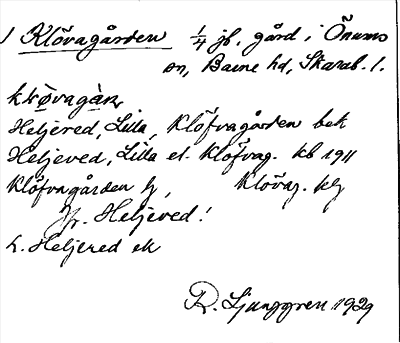 1 Klövagården 1/4 jb. gård i Önums
sn, Barne hd, Skarab. l.
kḷø̀vagàṇ
Heljered, Lilla, Klöfvagården bek
Heljeved, Lilla el. Klöfvag. kb 1911
Klöfvagården hj, Klövag. klj
Jfr. Heljeved!
L. Heljered ek
R. Ljunggren 1929